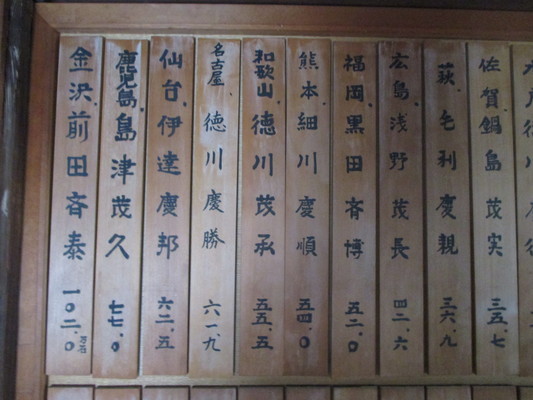 金沢 前田斉泰 一〇二.〇万石
鹿児島 島津茂久 七七.〇
仙台 伊達慶邦 六二.五
名古屋 徳川慶勝 六一.九
和歌山 徳川茂承 五五.五
熊本 細川慶順 五四.〇
福岡 黒田斉博 五二.〇
広島 浅野茂長 四二.六
萩 毛利慶親 三六.九
佐賀 鍋島茂実 三五.七